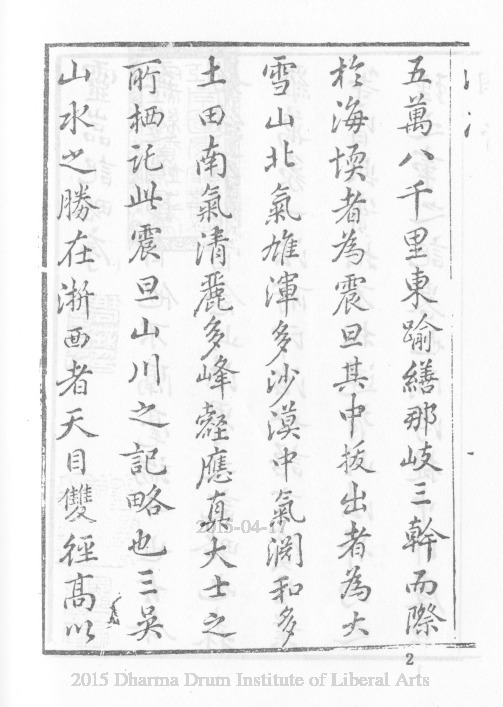 五萬八千里東踰繕那岐三幹而際
於海堧者為震旦其中拔出者為大
雪山北氣雄渾多沙漠中氣溯和多
土田南氣清麗多峰壑應真大士之
所栖託此震旦山川之記略也三吴
山水之勝在浙西者天目雙徑高以
2015-04-17
2
2015 Dharma Drum Institute of Liberal Arts